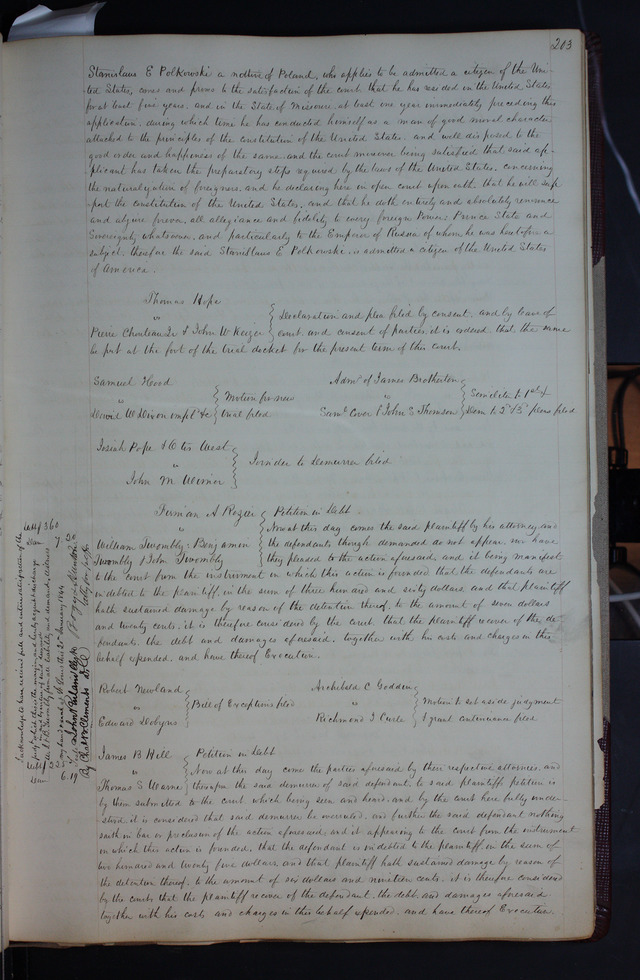 203
Stanislaus E Polkowski a native of Poland, who applies to be admitted a citizen of the Uni-
ted States, comes and proves to the satisfaction of the court that he has resided in the United States
for at least five years, and in the State of Missouri at least one year immediately preceding this
application, during which time he has conducted himself as a man of good moral character
attached to the principles of the constitution of the United States, and well disposed to the
good order and happiness of the same, and the court moreover being satisfied that said ap-
plicant has taken the preparatory steps required by the laws of the United States, concerning
the naturalization of foreigners, and he declaring here in open court upon oath that he will sup-
port the constitution of the United States, and that he doth entirely and absolutely renounce
and abjure forever, all allegiance and fidelity to every foreign Power, Prince State and
Sovereignty whatsoever, and particularly to the Emperor of Russia of whom he was heretofore a
subject, therefore the said Stanislaus E Polkowski is admitted a citizen of the United States
of America.
Thomas Hope
vs
Pierre Chouteau Jr & John W Keizer
Declaration and plea filed by consent, and by leave of
court and consent of parties, it is ordered that the same
be put at the foot of the trial docket for the present term of this court.
Samuel Hood
vs
David W Dixon impl &c
Motion for new
trial filed
Admr of James Brotherton
vs
Saml Cover & John S Thomson
Similiter to 1st &
Dem to 2d & 3d pleas filed
Josiah Pope & Otis West
vs
John M Weimer
Joinder to Demurrer filed
Firman A Rozier
vs
William Twombly, Benjamin
Twombly & John Twombly
Petition in Debt
Now at this day comes the said plaintiff by his attorney and
the defendants though demanded do not appear, nor have
they pleaded to the action aforesaid, and it being manifest
to the court from the instrument on which this action is founded that the defendants are
indebted to the plaintiff, in the sum of three hundred and sixty dollars and that plaintiff
hath sustained damage by reason of the detention thereof, to the amount of seven dollars
and twenty cents, it is therefore considered by the court, that the plaintiff recover of the de-
fendants, the debt and damages aforesaid, together with his costs and charges in this
behalf expended, and have thereof Execution.
Robert Newland
vs
Edward Dobyns
Bill of Exceptions filed
Archibald C Godden
vs
Richmond J Curle
Motion to set aside judgment
& grant continuance filed
James B Hill
vs
Thomas S Warne
Petition in Debt
Now at this day come the parties aforesaid by their respective attornies, and
thereupon the said demurrer of said defendant to said plaintiffs petition is
by them submitted to the court which being seen and heard, and by the court here fully under-
stood, it is considered that said demurrer be overruled, and further the said defendant nothing
saith in bar or preclusion of the action aforesaid, and it appearing to the court from the instrument
on which this action is founded, that the defendant is indebted to the plaintiff, in the sum of
two hundred and twenty five dollars, and that plaintiff hath sustained damage by reason of
the detention thereof, to the amount of six dollars and nineteen cents, it is therefore considered
by the court that the plaintiff recover of the defendant, the debt, and damages aforesaid
together with his costs and charges in this behalf expended, and have thereof Execution
Debt $360
I acknowledge to have received full and entire satisfaction of the
John Ruland Clerk
By Chas W Clements D.C.
6.19